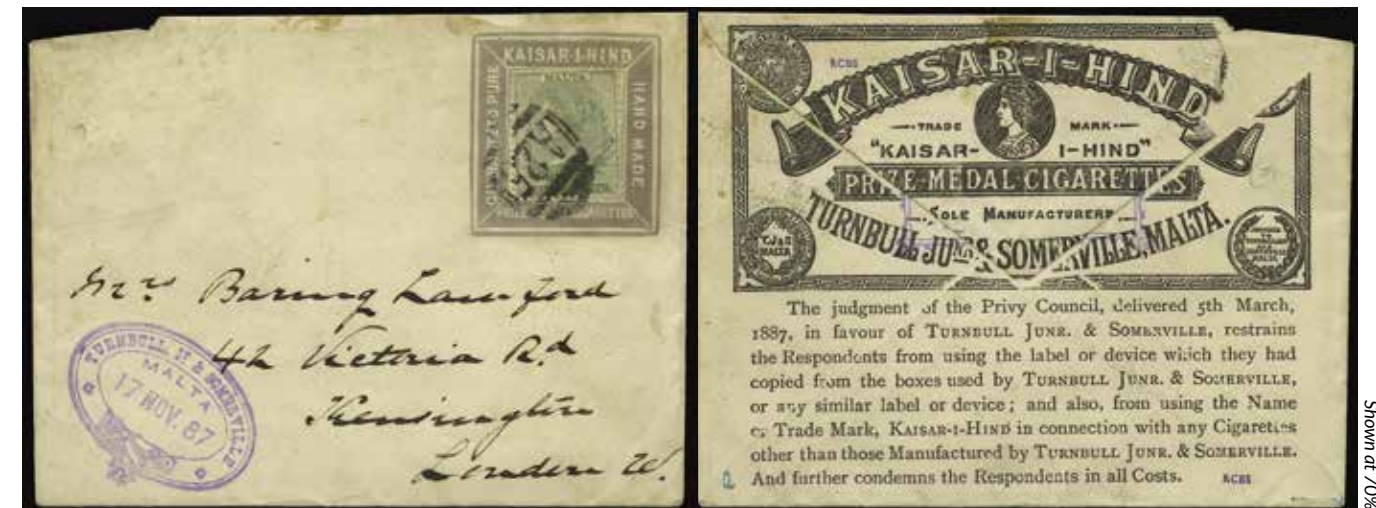 KAISAR-I-HIND
PURE
HAND MADE
MALTA
A25
PRIZE CIGARETTES
Mrs Baring
42 Victoria Rd
Kensington
London W.
TURNBULL Jr & SOMERVILLE
MALTA
17 NOV. 87
RCBS
KAISAR-I-HIND
TRADE MARK
"KAISAR-I-HIND"
PRIZE MEDAL CIGARETTES
SOLE MANUFACTURERS
TURNBULL JUNR. & SOMERVILLE, MALTA.
T.J&S
MALTA
The judgment of the Privy Council, delivered 5th March,
1887, in favour of TURNBULL JUNR. & SOMERVILLE, restrains
the Respondents from using the label or device which they had
copied from the boxes used by TURNBULL JUNR. & SOMERVILLE,
or any similar label or device; and also, from using the Name
or Trade Mark, KAISAR-I-HIND in connection with any Cigarettes
other than those Manufactured by TURNBULL JUNR. & SOMERVILLE.
And further condemns the Respondents in all Costs.
RCBS
Shown at 70%